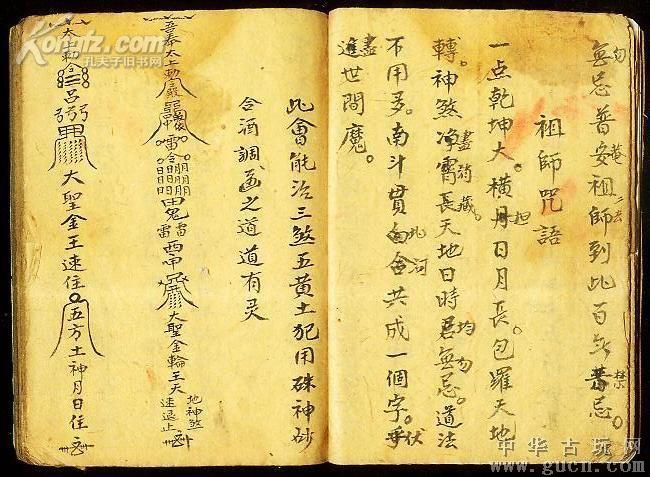 Kongfz.com
孔夫子旧书网
勿 庵 禁
無忌普安祖師到此百無普忌。
祖師咒語
担
一点乾坤大。橫丹日月長。包羅天地
盡消藏。均勿
轉。神煞净霄長天地日時君無忌。道法
北河 伏
不用多。南斗貫白舍共成一個字。乎
盡
進世間魔。
此會能治三煞五黄土犯用硃神砂
合酒調画之道道有灵
吾奉太上勅令 雷令 田鬼 雷 西 大聖金輪王天
地神煞
速退止
大聖金王速住 五方土神月日住
中华古玩网
www.gucn.com